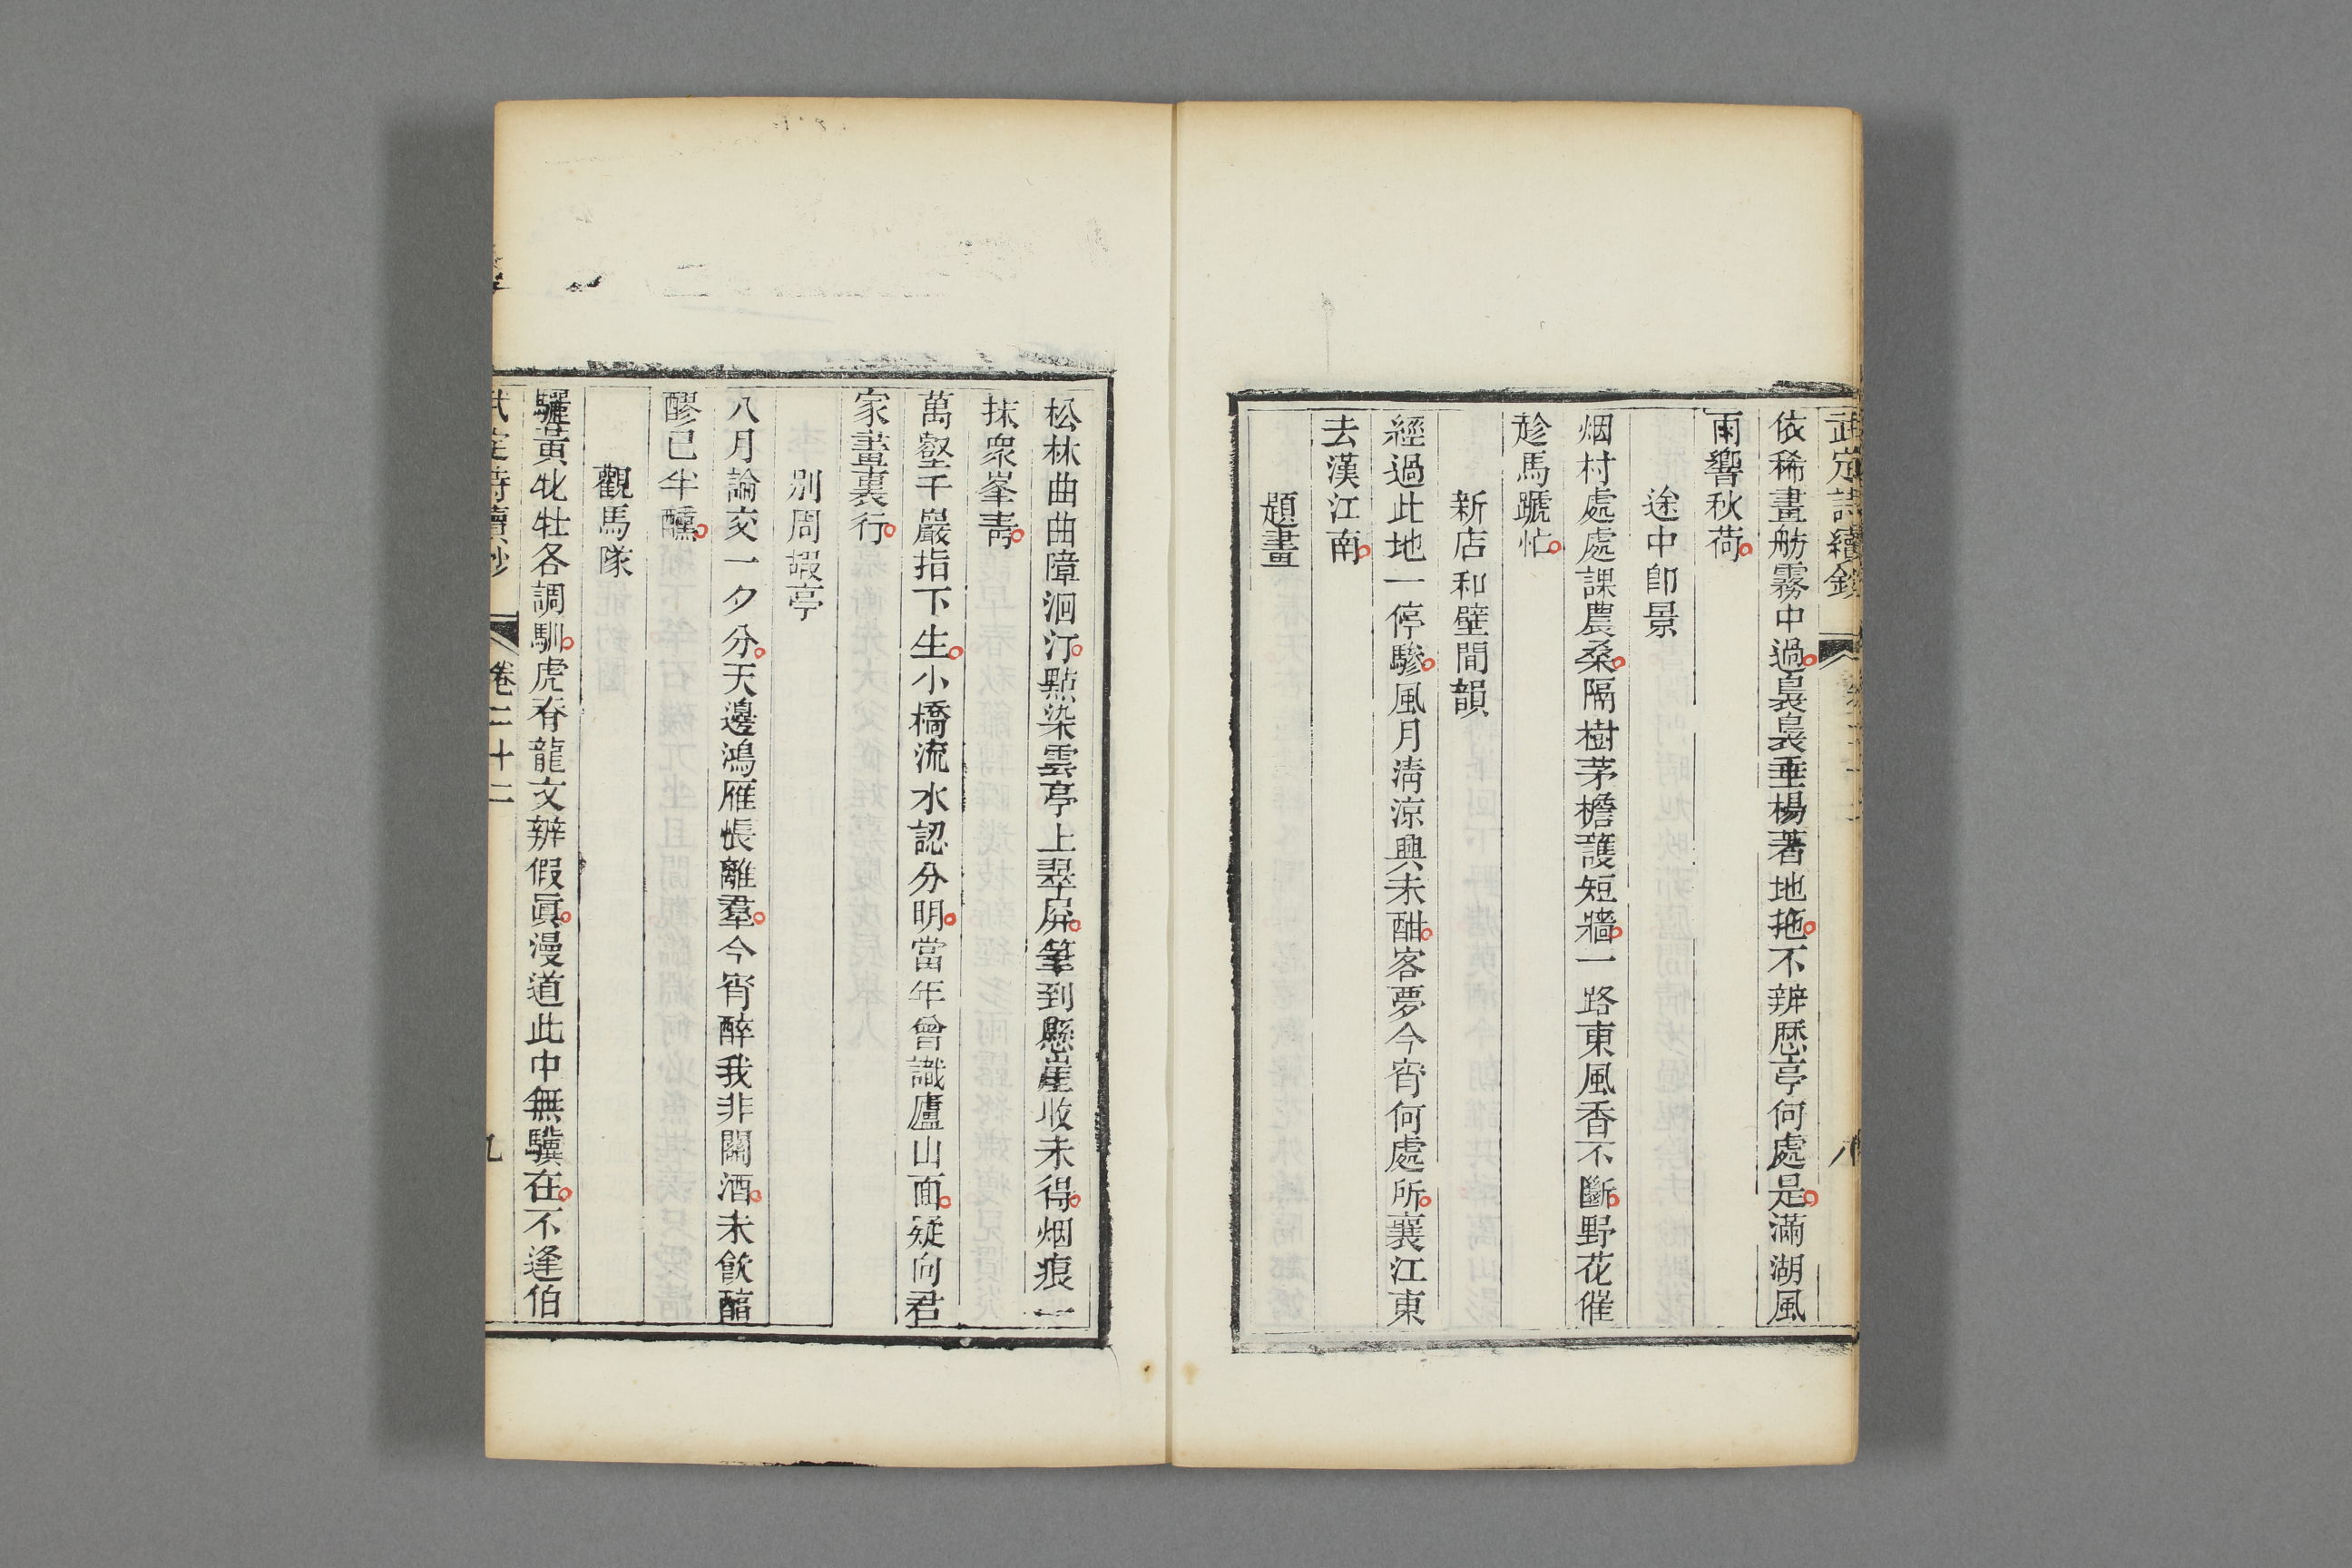 武定詩續鈔
八
依稀畫舫霧中過裊裊垂楊著地拖不辨歷亭何處是滿湖風
雨響秋荷
途中卽景
烟村處處課農桑隔樹茅檐護短牆一路東風香不斷野花催
趁馬蹏忙
新店和壁間韻
經過此地一停驂風月淸涼興未酣客夢今宵何處所襄江東
去漢江南
題畫
松林曲曲障洄汀點染雲亭上翠屏筆到懸崖收未得烟痕一
抹衆峯靑
萬壑千巖指下生小橋流水認分明當年曾識廬山面疑向君
家畫裏行
別周嘏亭
八月論交一夕分天邊鴻雁悵離羣今宵醉我非關酒未飮醕
醪已半醺
觀馬隊
驪黃牝牡各調馴虎脊龍文辨假眞漫道此中無驥在不逢伯
武定詩續鈔
卷二十二
九